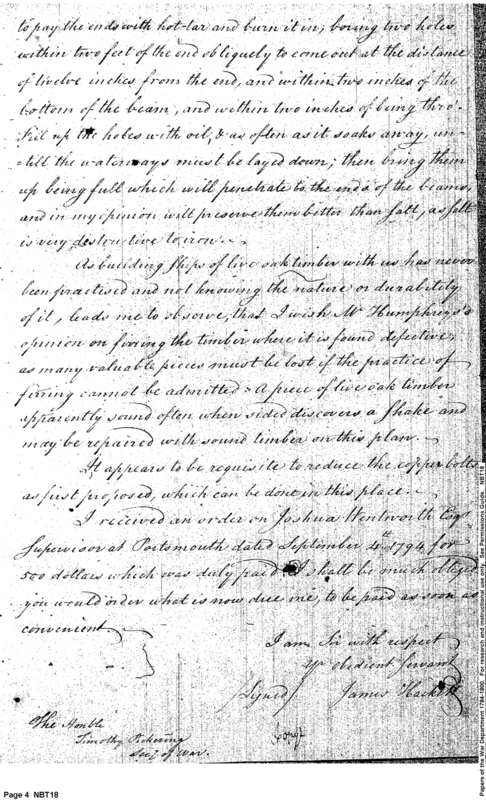 to pay the ends with hot tar and burn it in; boring two holes
within two feet of the end obliquely to come out at the distance
of twelve inches from the end, and within two inches of the
bottom of the beam, and within two inches of being thro'.
Fill up the holes with oil, & as often as it soaks away, un-
-till the waterways must be layed down; then bung them
up being full which will penetrate to the ends of the beams,
and in my opinion will preserve them better than salt, as salt
is very destructive to iron.
As building ships of live oak timber with us has never
been practised and not knowing the nature or durability
of it, leads me to observe, that I wish Mr Humphreys's
opinion on firring the timber where it is found defective,
as many valuable pieces must be lost if the practice of
firring cannot be admitted - A piece of live oak timber
apparently sound often when sided discovers a shake and
may be repaired with sound timber on this plan.
It appears to be requisite to reduce the copper bolts
as first proposed, which can be done in this place.
I received an order on Joshua Wentworth Esqr
Supervisor at Portsmouth dated September 4th 1794 for
500 dollars which was duly paid I shall be much obliged
you would order what is now due me, to be paid as soon as
convenient
I am Sir with respect
Yr obedient servant
(Signed) James Hackett
The Honble
Timothy Pickering
Secy of War.
Copy
Page 4 NBT18
Papers of the War Department 1784-1800. For research and institutional use only. See Permissions Guide. NBT18